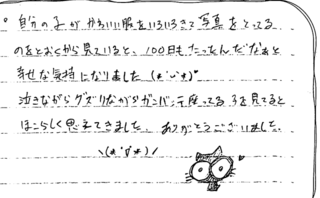 。自分の子がかわいい服をいろいろきて写真をとってる
のをとおくから見ていると、100日もたったんだなぁと
幸せな気持になりました(*'ν'*)
泣きながらグズりながらガンバって座ってる子を見てると
ほこらしく思えてきました。ありがとうございました。
\(*'∇'*)/